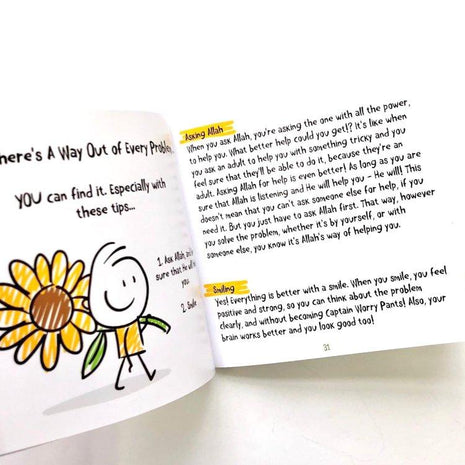 here's A Way Out of Every Problem
YOU can find it. Especially with
these tips...
1. Ask Allah, and
sure that He will
you.
2. Smile
Asking Allah
When you ask Allah, you're asking the one with all the power,
to help you. What better help could you get!? It's like when
you ask an adult to help you with something tricky and you
feel sure that they'll be able to do it, because they're an
adult. Asking Allah for help is even better! As long as you are
sure that Allah is listening and He will help you – He will! This
doesn't mean that you can't ask someone else for help, if you
need it. But you just have to ask Allah first. That way, however
you solve the problem, whether it's by yourself, or with
someone else, you know it's Allah's way of helping you.
Smiling
Yes! Everything is better with a smile. When you smile, you feel
positive and strong, so you can think about the problem
clearly, and without becoming Captain Worry Pants! Also, your
brain works better and you look good too!
31